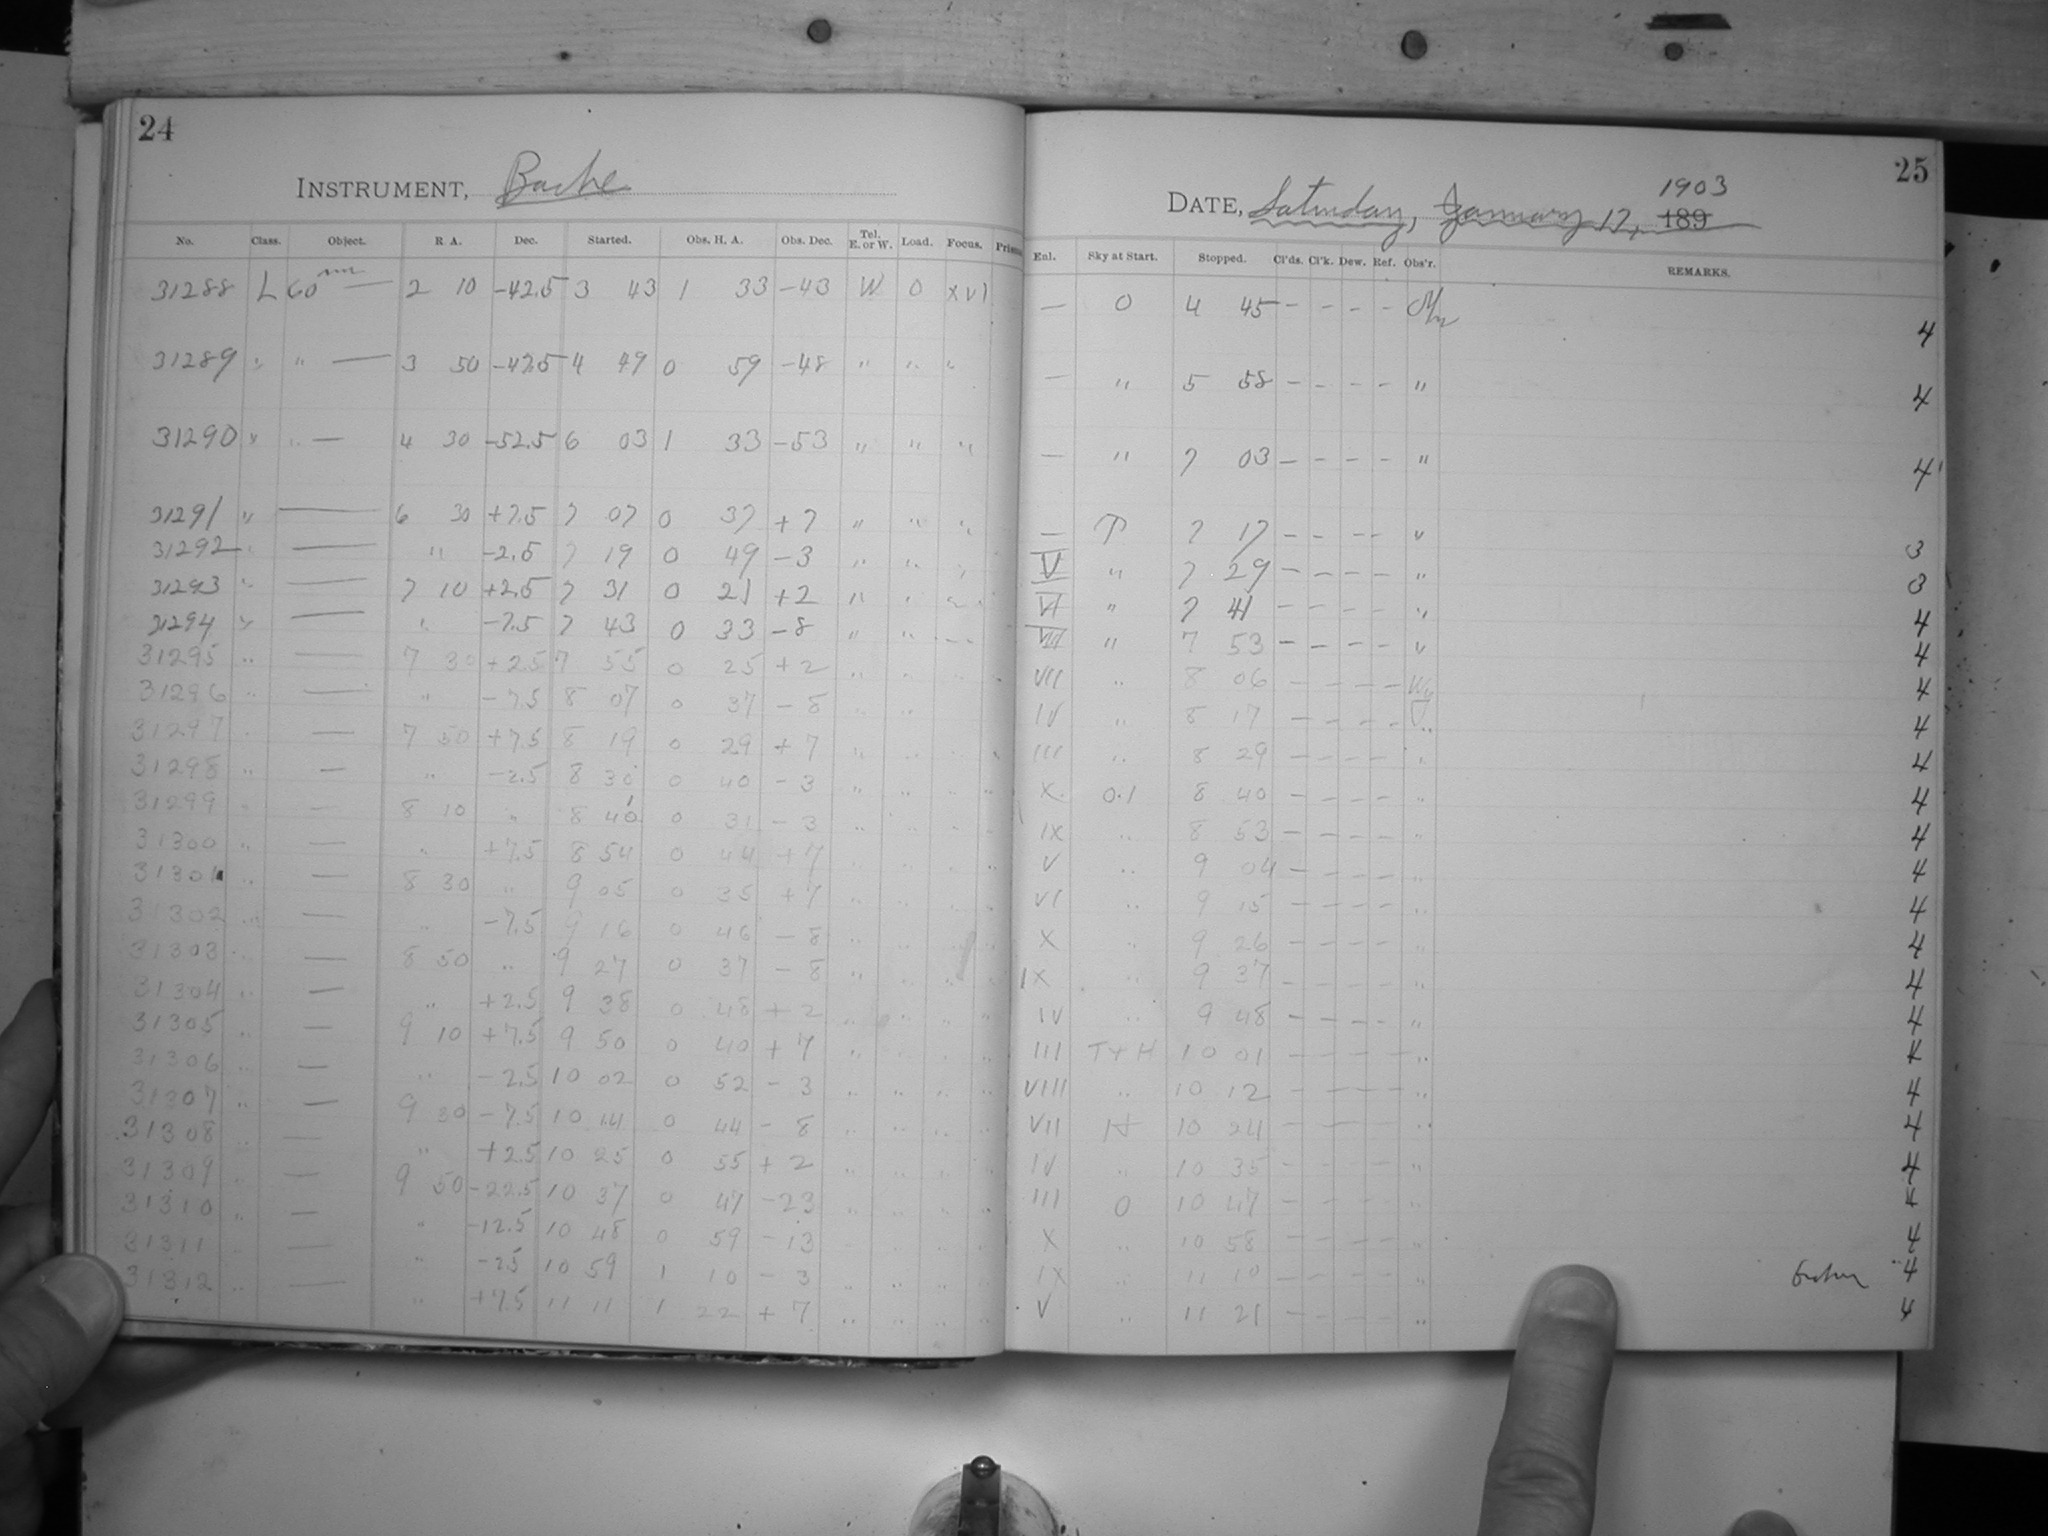 24
INSTRUMENT, Bache
No. Class. Object. R. A. Dec. Started. Obs. H. A. Obs. Dec. Tel. E. or W. Load. Focus.
31288 L 60m — 2 10 -42.5 3 43 1 33 -43 W 0 XVI
31289 " " — 3 50 -47.5 4 49 0 59 -48 " " "
31290 " " — 4 30 -52.5 6 03 1 33 -53 " " "
31291 " — 6 30 +7.5 7 07 0 37 +7 " " "
31292 " — " -2.5 7 19 0 49 -3 " " "
31293 " — 7 10 +2.5 7 31 0 21 +2 " " "
31294 " — " -7.5 7 43 0 33 -8 " " "
31295 " — 7 30 +2.5 7 55 0 25 +2 " " "
31296 " — " -7.5 8 07 0 37 -8 " "
31297 " — 7 50 +7.5 8 19 0 29 +7 " " " "
31298 " — " -2.5 8 30 0 40 -3 " " " "
31299 " — 8 10 " 8 40 0 31 -3 " " " "
31300 " — " +7.5 8 54 0 44 +7 " " " "
31301 " — 8 30 " 9 05 0 35 +7 " " " "
31302 " — " -7.5 9 16 0 46 -8 " " " "
31303 " — 8 50 " 9 27 0 37 -8 " " " "
31304 " — " +2.5 9 38 0 48 +2 " " " "
31305 " — 9 10 +7.5 9 50 0 40 +7 " " " "
31306 " — " -2.5 10 02 0 52 -3 " " " "
31307 " — 9 30 -7.5 10 14 0 44 -8 " " " "
31308 " — " +2.5 10 25 0 55 +2 " " " "
31309 " — 9 50 -22.5 10 37 0 47 -23 " " " "
31310 " — " -12.5 10 48 0 59 -13 " " " "
31311 " — " -2.5 10 59 1 10 -3 " " " "
31312 " — " +7.5 11 11 1 22 +7 " " " "
25
1903
DATE, Saturday, January 17, 189
Enl. Sky at Start. Stopped. Cl'ds. Cl'k. Dew. Ref. Obs'r. REMARKS.
— 0 4 45 — — — — 4
— " 5 58 — — — — " 4
— " 7 03 — — — — " 4
— T 7 17 — — — — " 3
V " 7 29 — — — — " 3
VI " 7 41 — — — — " 4
VIII " 7 53 — — — — " 4
VII " 8 06 — — — — 4
IV " 8 17 — — — — " 4
III " 8 29 — — — — " 4
X 0.1 8 40 — — — — " 4
IX " 8 53 — — — — " 4
V " 9 04 — — — — " 4
VI " 9 15 — — — — " 4
X " 9 26 — — — — " 4
IX " 9 37 — — — — " 4
IV " 9 48 — — — — " 4
III T+H 10 01 — — — — " 4
VIII " 10 12 — — — — " 4
VII H 10 24 — — — — " 4
IV " 10 35 — — — — " 4
III 0 10 47 — — — — " 4
X " 10 58 — — — — " 4
IX " 11 10 — — — — " 4
V " 11 21 — — — — " 4